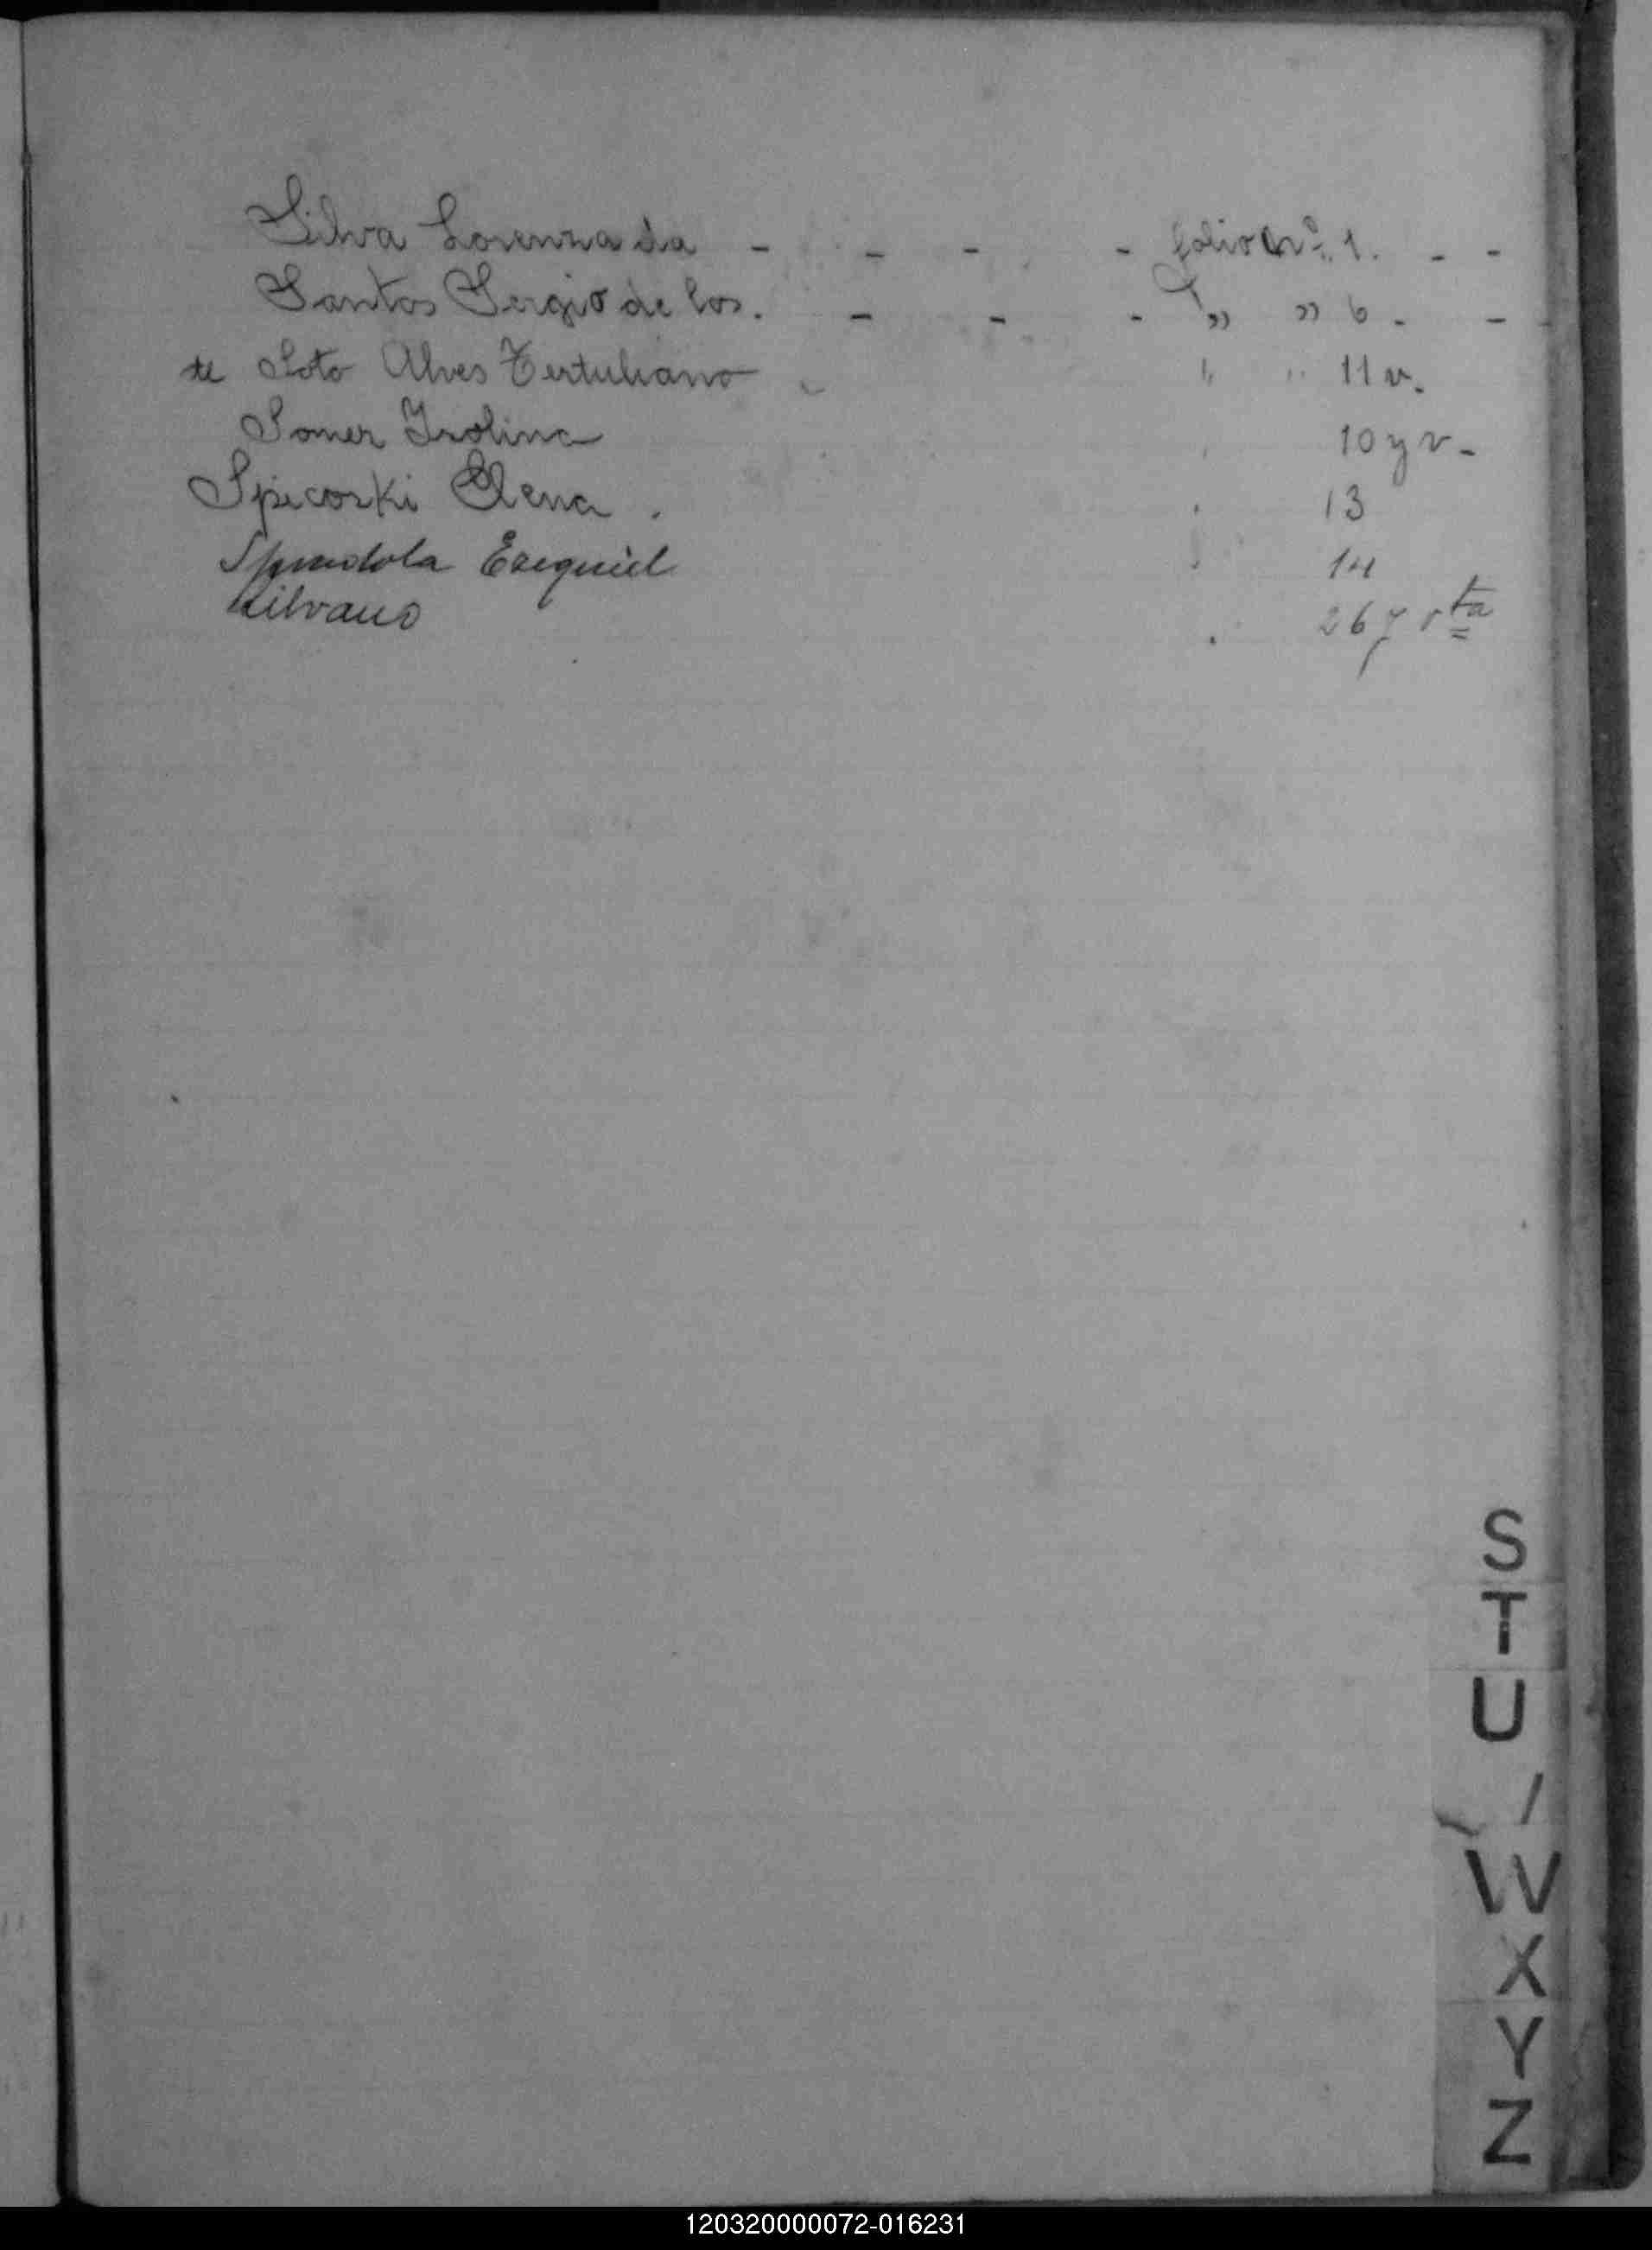 Silva Lorenza da - - - - folio nº 1. - -
Santos Sergio de los. - - - " " 6 - -
te Soto Alves Tertuliano " " 11 v.
Soner Isolina 10 y v-
Spicorski Elena . 13
Spindola Ezequiel 14
Silvano 26 y vta
S
T
U
W
X
Y
Z
120320000072-016231